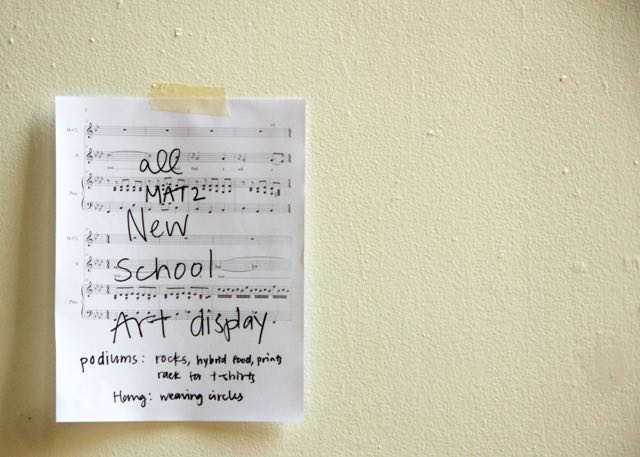 all
MAT2
New
School
Art display.
podiums: rocks, hybrid food, prints
rack for t-shirts
Hang: weaving circles